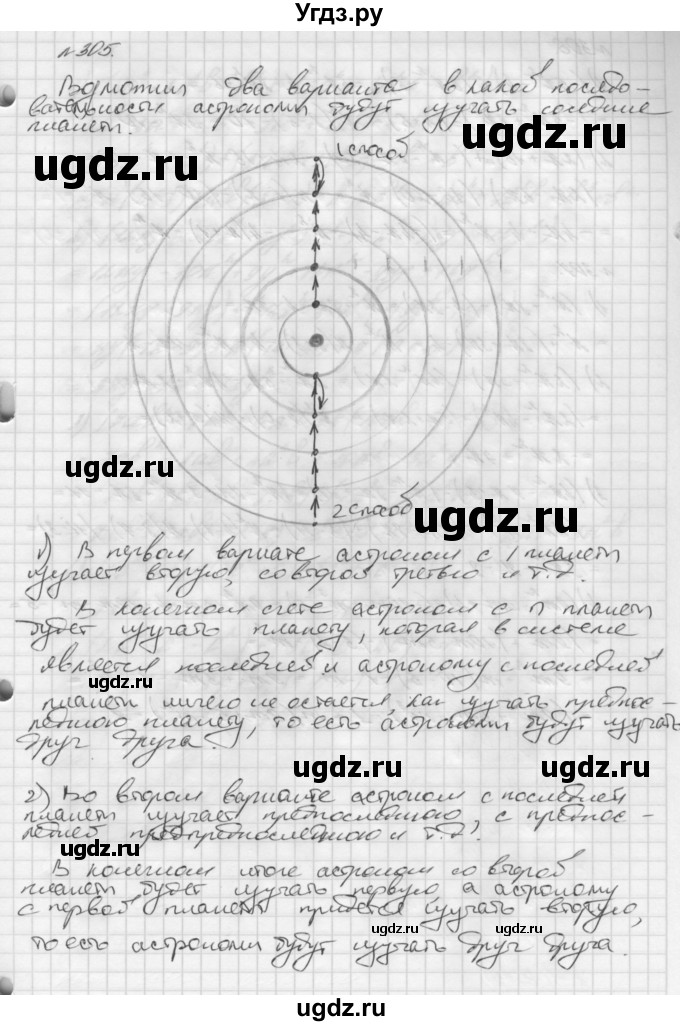 Угдз.ру
№305.
Возможны два варианта в какой последо-
вательности астрономы будут изучать соседние
планеты.
ugdz.ru
ugdz.ru
1 способ
ugdz.ru
ugdz.ru
2 способ
1) В первом варианте астроном с 1 планеты
изучает вторую, со второй третью и т.д.
В конечном счете астроном с n планеты
будет изучать планету, которая в системе
является последней и астроному с последней
ugdz.ru
планеты ничего не остается, как изучать предпос-
леднюю планету, то есть астрономы будут изучать
друг друга.
ugdz.ru
ugdz.ru
2) Во втором варианте астроном с последней
планеты изучает предпоследнюю, с предпос-
ледней предпредпоследнюю и т.д.
ugdz.ru
В конечном итоге астроном со второй
планеты будет изучать первую, а астроному
с первой планеты придется изучать вторую,
то есть астрономы будут изучать друг друга.
ugdz.ru
ugdz.ru
ugdz.ru